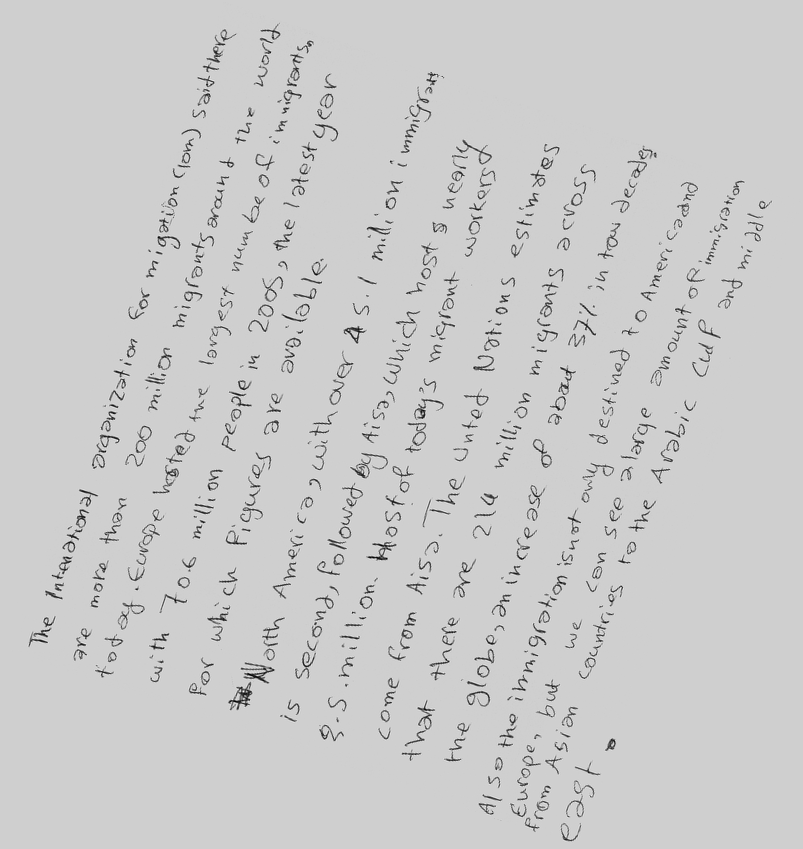 The Intenational organization for migation (iom) said there
are more than 200 million migrants around the world
today. Europe hosted the largest numbe of immigrants,
with 70.6 million people in 2005, the latest year
for which figures are available.
North America, with over 45.1 million immigrants
is second, followed by Aisa, which hosts nearly
million. Most of today's migrant workers
come from Aisa. The Unted Nations estimates
that there are 214 million migrants across
the globe, an increase of about 37% in tow decades
Also the immigration is not only destined to America and
Europe, but we can see a large amount of immigration
from Asian countries to the Arabic Culf and middle
east.